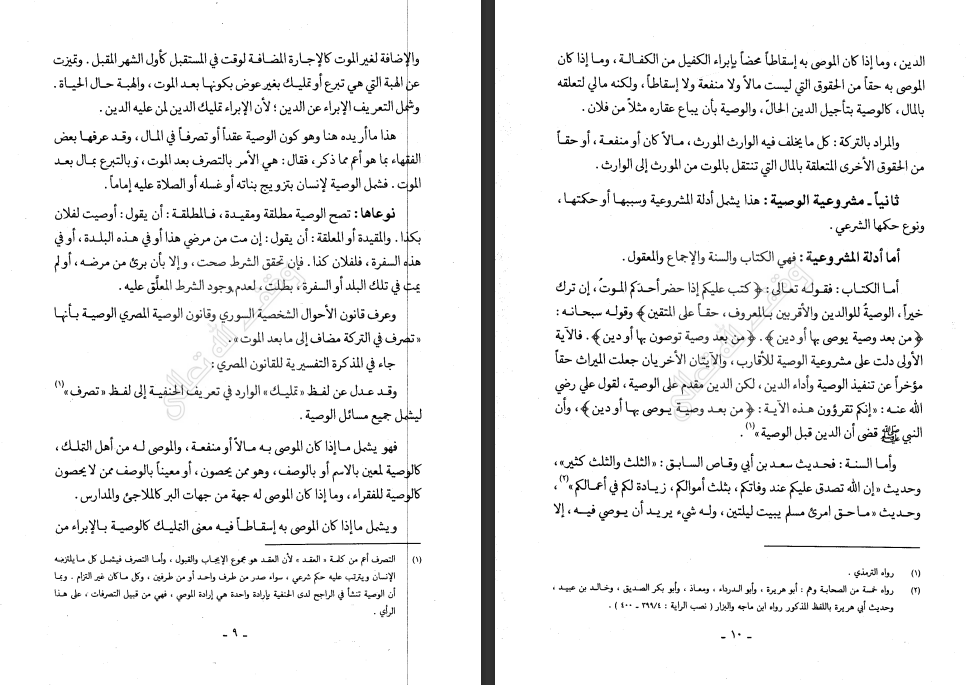 والإضافة لغير الموت كالإجارة المضافة لوقت في المستقبل كأول الشهر المقبل . وتميزت
عن الهبة التي هي تبرع أو تمليك بغير عوض بكونها بعد الموت ، والهبة حال الحياة .
وشمل التعريف الإبراء عن الدين ؛ لأن الإبراء تمليك الدين لمن عليه الدين .
هذا ما أريده هنا وهو كون الوصية عقداً أو تصرفاً في المال ، وقد عرفها بعض
الفقهاء بما هو أعم مما ذكر ، فقال : هي الأمر بالتصرف بعد الموت ، وبالتبرع بمال بعد
الموت . فشمل الوصية لإنسان بتزويج بناته أو غسله أو الصلاة عليه إماماً .
نوعاها : تصح الوصية مطلقة ومقيدة ، فالمطلقة : أن يقول : أوصيت لفلان
بكذا . والمقيدة أو المعلقة : أن يقول : إن مت من مرضي هذا أو في هذه البلدة ، أو في
هذه السفرة ، فلفلان كذا . فإن تحقق الشرط صحت ، وإلا بأن برئ من مرضه ، أو لم
يمت في تلك البلد أو السفرة ، بطلت ، لعدم وجود الشرط المعلَّق عليه .
وعرف قانون الأحوال الشخصية السوري وقانون الوصية المصري الوصية بأنها
« تصرف في التركة مضاف إلى ما بعد الموت » .
جاء في المذكرة التفسيرية للقانون المصري :
وقد عدل عن لفظ « تمليك » الوارد في تعريف الحنفية إلى لفظ « تصرف » (١)
ليشمل جميع مسائل الوصية .
فهو يشمل ما إذا كان الموصى به مالاً أو منفعة ، والموصى له من أهل التملك ،
كالوصية لمعين بالاسم أو بالوصف ، وهو ممن يحصون ، أو معيناً بالوصف ممن لا يحصون
كالوصية للفقراء ، وما إذا كان الموصى له جهة من جهات البر كالملاجئ والمدارس .
ويشمل ما إذا كان الموصى به إسقاطاً فيه معنى التمليك كالوصية بالإبراء من
(١) التصرف أعم من كلمة « العقد » لأن العقد هو مجموع الإيجاب والقبول ، وأما التصرف فيشمل كل ما يلتزمه
الإنسان ويترتب عليه حكم شرعي ، سواء صدر من طرف واحد أو من طرفين ، وكل ما كان غير التزام . وبما
أن الوصية تنشأ في الراجح لدى الحنفية بإرادة واحدة هي إرادة الموصي ، فهي من قبيل التصرفات ، على هذا
الرأي .
- ٩ -
الدين ، وما إذا كان الموصى به إسقاطاً محضاً بإبراء الكفيل من الكفالة ، وما إذا كان
الموصى به حقاً من الحقوق التي ليست مالاً ولا منفعة ولا إسقاطاً ، ولكنه مالي لتعلقه
بالمال ، كالوصية بتأجيل الدين الحالّ ، والوصية بأن يباع عقاره مثلاً من فلان .
والمراد بالتركة : كل ما يخلف فيه الوارث المورث ، مالاً كان أو منفعة ، أو حقاً
من الحقوق الأخرى المتعلقة بالمال التي تنتقل بالموت من المورث إلى الوارث .
ثانياً ـ مشروعية الوصية : هذا يشمل أدلة المشروعية وسببها أو حكمتها ،
ونوع حكمها الشرعي .
أما أدلة المشروعية : فهي الكتاب والسنة والإجماع والمعقول .
أما الكتاب : فقوله تعالى : ﴿ كتب عليكم إذا حضر أحدَكم الموتُ ، إن ترك
خيراً ، الوصيةُ للوالدين والأقربين بالمعروف ، حقاً على المتقين ﴾ وقوله سبحانه :
﴿ من بعد وصية يوصى بها أو دين ﴾ . ﴿ من بعد وصية توصون بها أو دين ﴾ . فالآية
الأولى دلت على مشروعية الوصية للأقارب ، والآيتان الأخريان جعلت الميراث حقاً
مؤخراً عن تنفيذ الوصية وأداء الدين ، لكن الدين مقدم على الوصية ، لقول علي رضي
الله عنه : « إنكم تقرؤون هذه الآية : ﴿ من بعد وصية يوصى بها أو دين ﴾ ، وأن
النبي ﷺ قضى أن الدين قبل الوصية » (١) .
وأما السنة : فحديث سعد بن أبي وقاص السابق : « الثلث والثلث كثير » ،
وحديث « إن الله تصدق عليكم عند وفاتكم ، بثلث أموالكم ، زيادة لكم في أعمالكم » (٢) ،
وحديث « ما حق امرئ مسلم يبيت ليلتين ، وله شيء يريد أن يوصي فيه ، إلا
(١) رواه الترمذي .
(٢) رواه خمسة من الصحابة وهم : أبو هريرة ، وأبو الدرداء ، ومعاذ ، وأبو بكر الصديق ، وخالد بن عبيد ،
وحديث أبي هريرة باللفظ المذكور رواه ابن ماجه والبزار ( نصب الراية : ٣٩٩/٤ ـ ٤٠٠ ) .
- ١٠ -